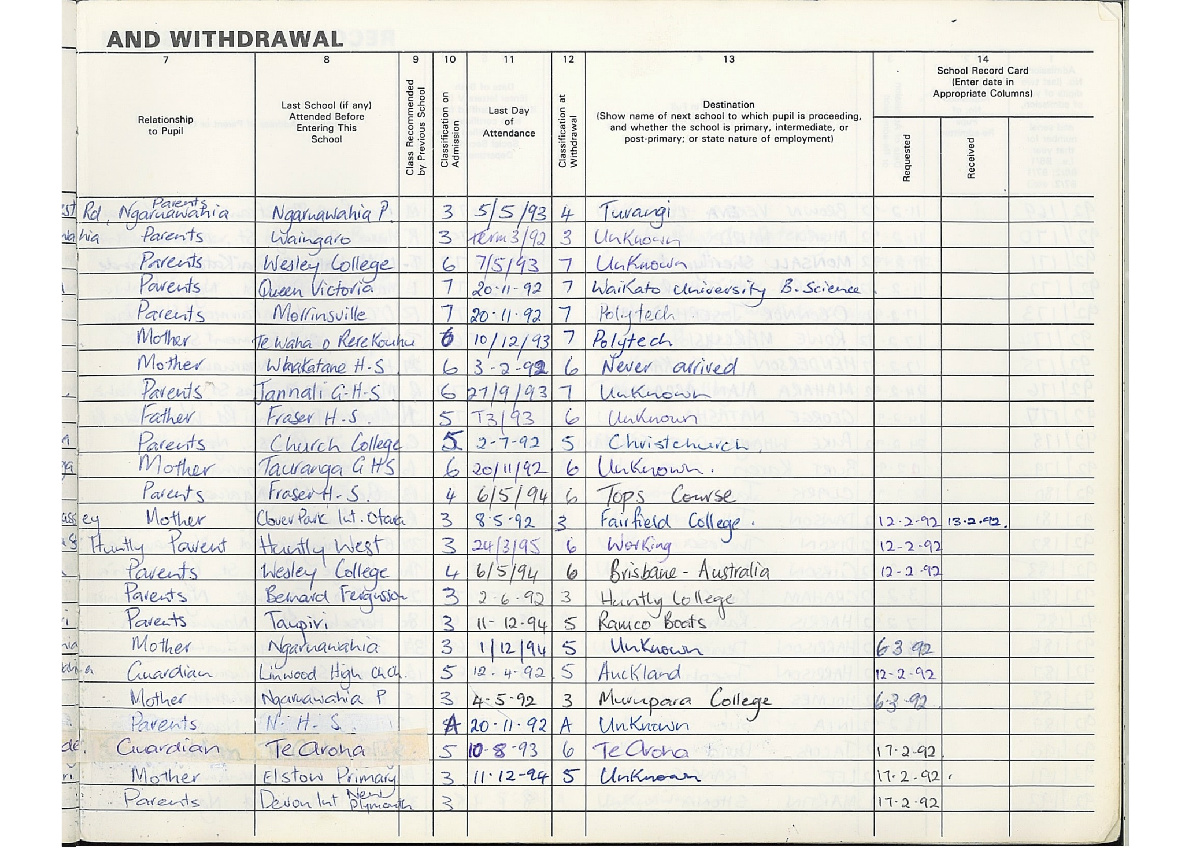 AND WITHDRAWAL
7 8 9 10 11 12 13 14
Relationship to Pupil
Last School (if any) Attended Before Entering This School
Class Recommended by Previous School
Classification on Admission
Last Day of Attendance
Classification at Withdrawal
Destination
(Show name of next school to which pupil is proceeding, and whether the school is primary, intermediate, or post-primary; or state nature of employment)
School Record Card (Enter date in Appropriate Columns)
Requested
Received
Rd, Ngaruawahia Parents Ngaruawahia P. 3 5/5/93 4 Turangi
hia Parents Waingaro 3 term 3/92 3 UnKnown
Parents Wesley College 6 7/5/93 7 UnKnown
Parents Queen Victoria 7 20·11·92 7 Waikato University B. Science.
Parents Morrinsville 7 20·11·92 7 Polytech
Mother Te Waha o Rerekouhu 6 10/12/93 7 Polytech
Mother Whakatane H-S 6 3-2-92 6 Never arrived
Parents Jannali G-H-S 6 27/9/93 7 UnKnown
Father Fraser H-S. 5 T3/93 6 UnKnown
Parents Church College 5 2-7-92 5 Christchurch.
Mother Tauranga GHS 6 20/11/92 6 UnKnown.
Parents Fraser H-S. 4 6/5/94 6 Tops Course
ey Mother Clover Park Int. Otara 3 8·5·92 3 Fairfield College. 12-2-92 13·2·92.
Huntly Parent Huntly West 3 24/3/95 6 Working 12-2-92
Parents Wesley College 4 6/5/94 6 Brisbane - Australia 12-2-92
Parents Bernard Fergusson 3 2-6-92 3 Huntly College
Parents Taupiri 3 11-12-94 5 Ramco Boats
Mother Ngaruawahia 3 1/12/94 5 UnKnown 6·3·92
a Guardian Linwood High chch. 5 12·4·92 5 Auckland 12-2-92
Mother Ngaruawahia P 3 4-5-92 3 Murupara College 6·3·92
Parents N·H·S· A 20·11·92 A UnKnown
de. Guardian Te Aroha 5 10-8-93 6 Te Aroha 17·2·92.
Mother Elstow Primary 3 11·12-94 5 UnKnown 17·2·92.
Parents Devon Int New Plymouth 3 17·2·92